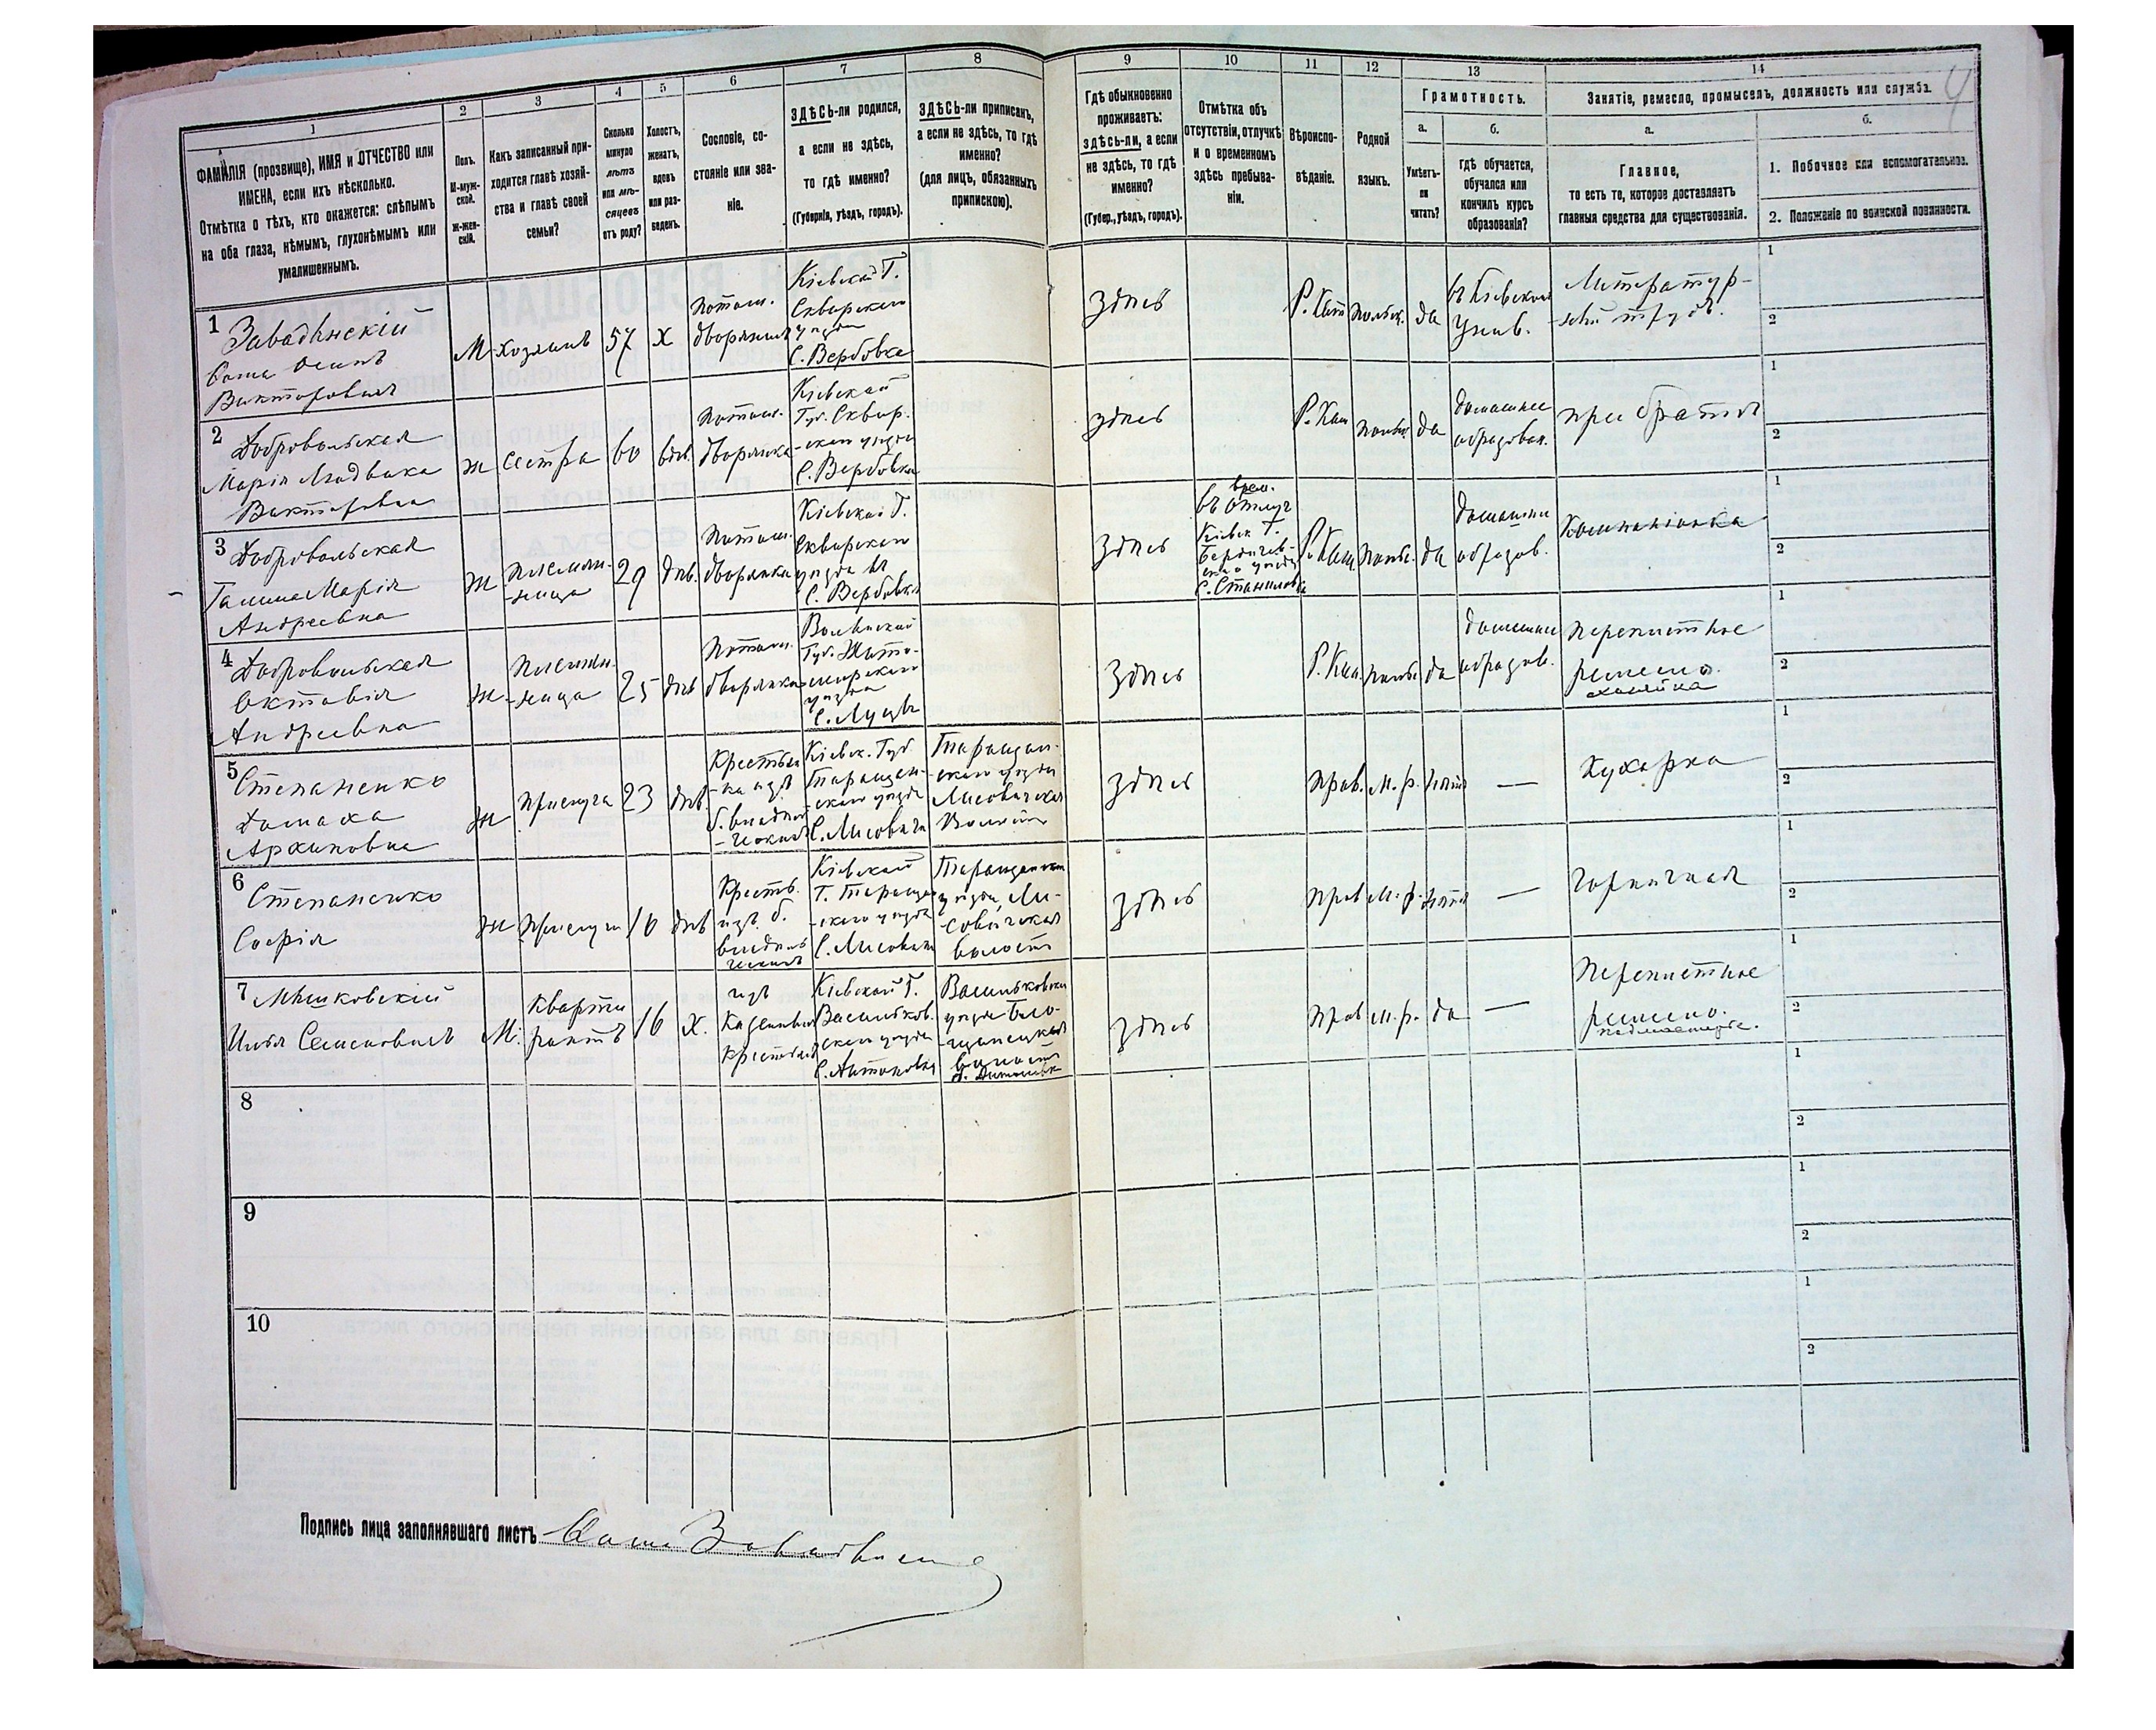 4
1
2
3
4
5
6
7
8
9
10
11
12
13
14
ФАМИЛІЯ (прозвище), ИМЯ и ОТЧЕСТВО или
ИМЕНА, если ихъ нѣсколько.
Отмѣтка о тѣхъ, кто окажется: слѣпымъ
на оба глаза, нѣмымъ, глухонѣмымъ или
умалишеннымъ.
Полъ.
М-муж-
ской.
Ж-жен-
скій.
Какъ записанный при-
ходится главѣ хозяй-
ства и главѣ своей
семьи?
Сколько
минуло
лѣтъ
или мѣ-
сяцевъ
отъ роду?
Холостъ,
женатъ,
вдовъ
или раз-
веденъ.
Сословіе, со-
стояніе или зва-
ніе.
ЗДѢСЬ-ли родился,
а если не здѣсь,
то гдѣ именно?
(Губернія, уѣздъ, городъ).
ЗДѢСЬ-ли приписанъ,
а если не здѣсь, то гдѣ
именно?
(для лицъ, обязанныхъ
припискою).
Гдѣ обыкновенно
проживаетъ:
здѣсь-ли, а если
не здѣсь, то гдѣ
именно?
(Губер., уѣздъ, городъ).
Отмѣтка объ
отсутствіи, отлучкѣ
и о временномъ
здѣсь пребыва-
ніи.
Вѣроиспо-
вѣданіе.
Родной
языкъ.
Грамотность.
а.
Умѣетъ-
ли
читать?
б.
гдѣ обучается,
обучался или
кончилъ курсъ
образованія?
Занятіе, ремесло, промыселъ, должность или служба.
а.
Главное,
то есть то, которое доставляетъ
главныя средства для существованія.
б.
1. Побочное или вспомогательное.
2. Положеніе по воинской повинности.
1
Завадынскій
Осипъ
Викторовичъ
М
Хозяинъ
57
Х
потом.
дворянинъ
Кіевской Г.
Сквирскаго
уѣзда
С. Вербовка
здѣсь
Р. Кат
польск.
да
въ Кіевскомъ
Унив.
Литератур-
-ный трудъ.
1
2
2
Добровольская
Марія Людвика
Викторовна
ж
Сестра
60
вдв.
потом.
дворянка
Кіевской
Губ. Сквир-
-скаго уѣзда
С. Вербовка
здѣсь
Р. Кат
польс.
да
домашнее
образован.
при братѣ
1
2
3
Добровольская
Галина Марія
Андреевна
ж
племян-
-ница
29
дѣв.
потом.
дворянка
Кіевской Г.
Сквирскаго
уѣзда въ
С. Вербовкѣ
здѣсь
врем.
въ отлуч
Кіевск Г.
Бердичев-
скаго уѣзда
Р. Кат.
польс.
да
домашнее
образов.
Компаніонка
1
2
4
Добровольская
Октавія
Андреевна
ж
племян-
-ница
25
дѣв
потом.
дворянка
Волынской
Губ. Жито-
-мирскаго
уѣзда
здѣсь
Р. Кат.
польс.
да
домашнее
образов.
переплетное
ремесло.
хозяйка
1
2
5
Степаненко
Домаха
Архиповна
ж
прислуга
23
дѣв.
Крестьян
-ка изъ
б. владѣль
-ческихъ
Кіевск. Губ.
Таращан-
-скаго уѣзда
С. Лисовичи
Таращан-
-скаго уѣзда
Лисовичская
Волость
здѣсь
прав.
м. р.
нѣтъ
—
Кухарка
1
2
6
Степаненко
Софія
ж
прислуга
16
дѣв
Крестьян.
изъ б.
владѣль
ческихъ
Кіевской
Г. Таращан
-скаго уѣзда
С. Лисовичи
Таращанскаго
уѣзда, Ли-
совичская
волость
здѣсь
прав
м. р.
нѣтъ
—
горничная
1
2
7
Мышковскій
Илья Семеновичъ
М.
Кварти
рантъ
16
Х.
изъ
казенныхъ
крестьянъ
Кіевской Г.
Васильков-
скаго уѣзда
С. Антоновка
Васильковскаго
уѣзда
волость
здѣсь
прав
м. р.
да
—
переплетное
ремесло.
подмастерье.
1
2
8
1
2
9
1
2
10
1
2
Подпись лица заполнявшаго листъ